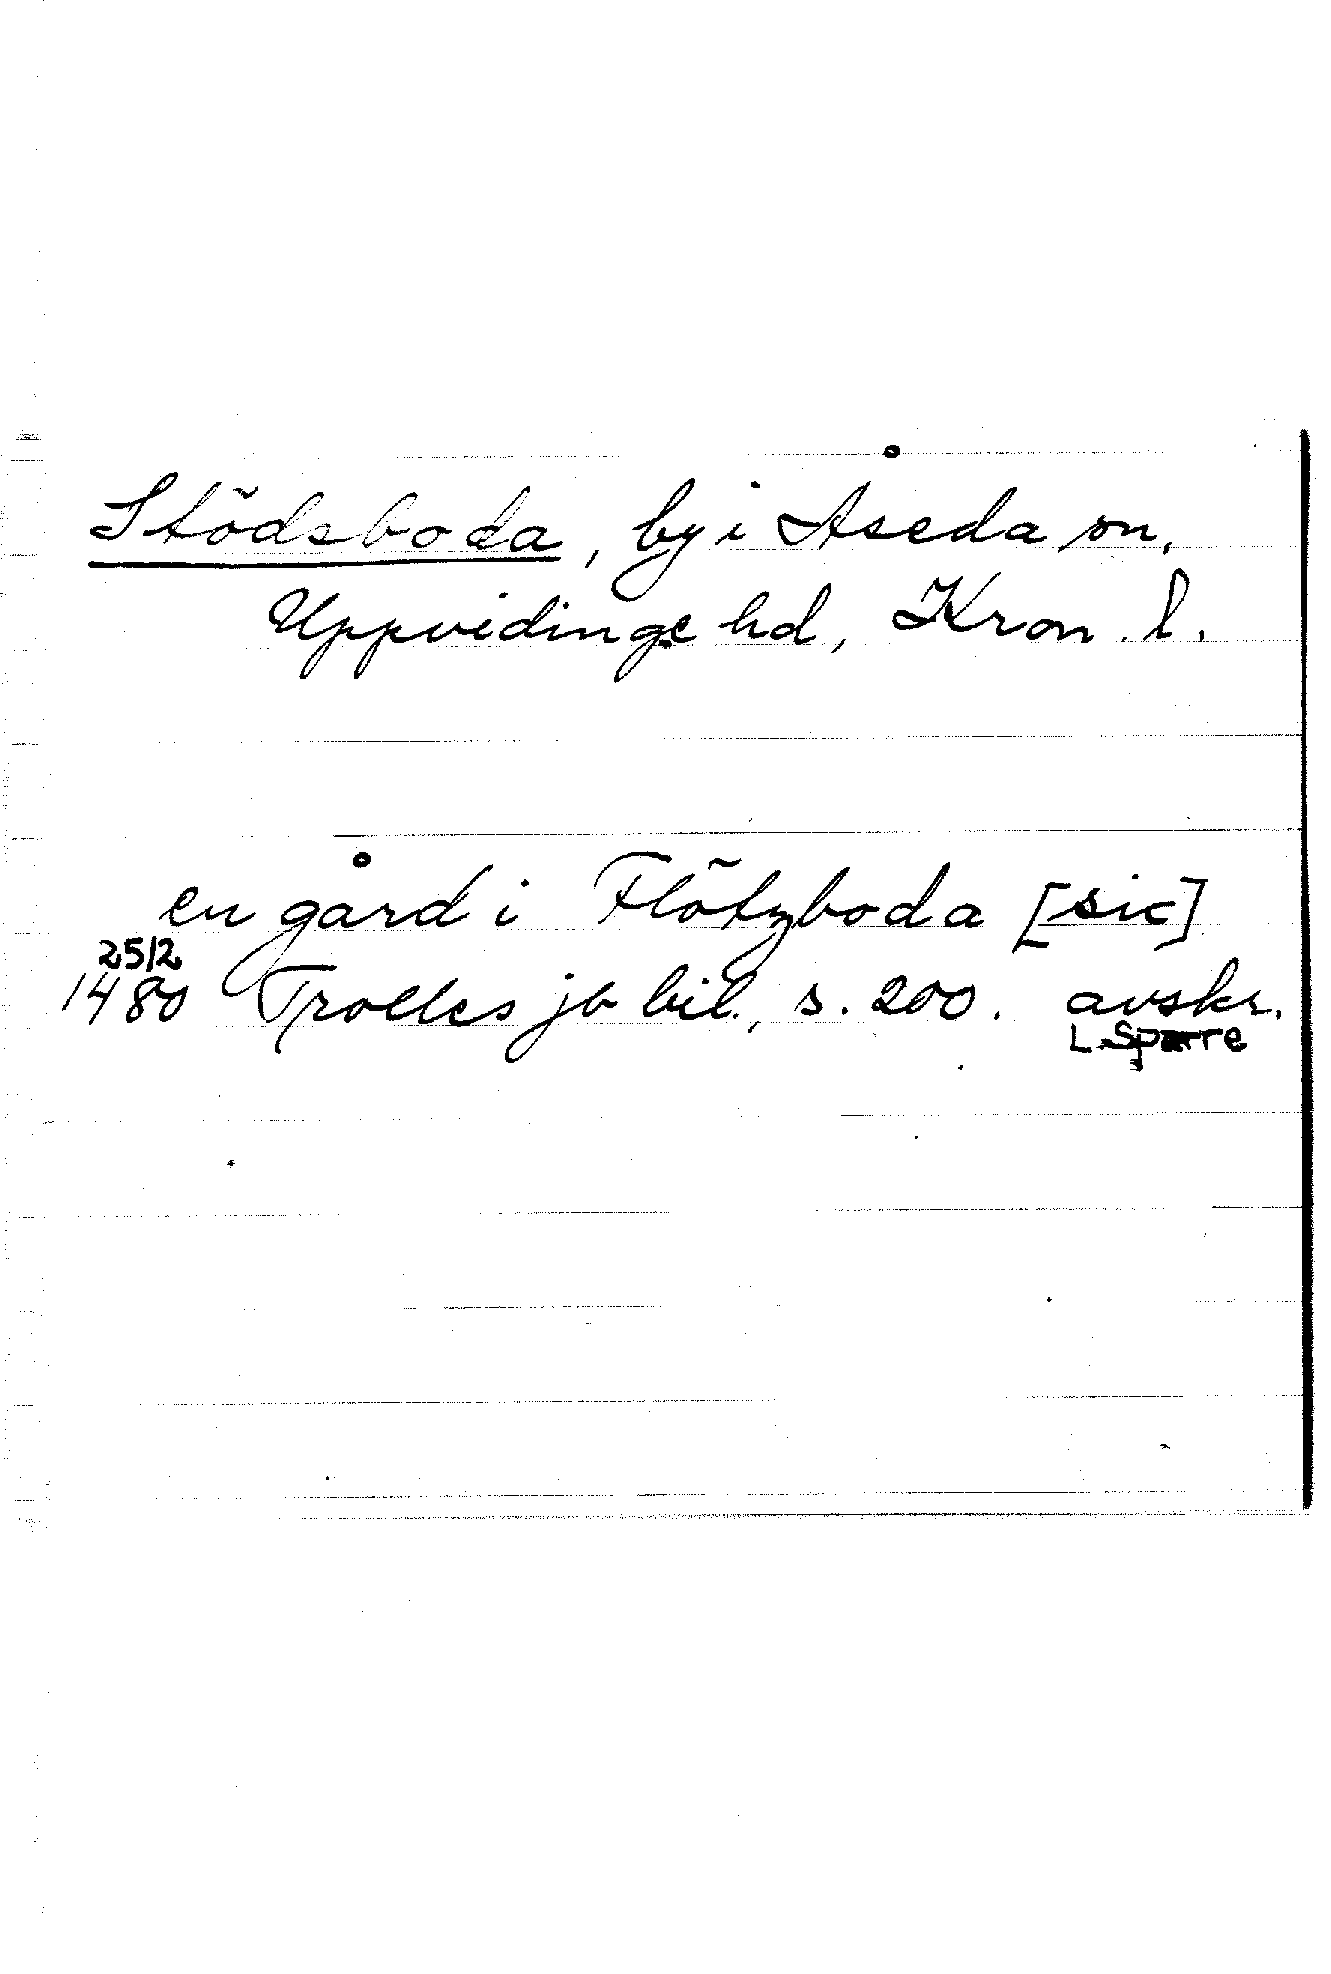 Stödsboda, by i Åseda sn,
Uppvidinge hd, Kron. l.
en gård i Flötzboda [sic]
25/2
1480 Trolles jb bil., s. 200. avskr.
L Sparre